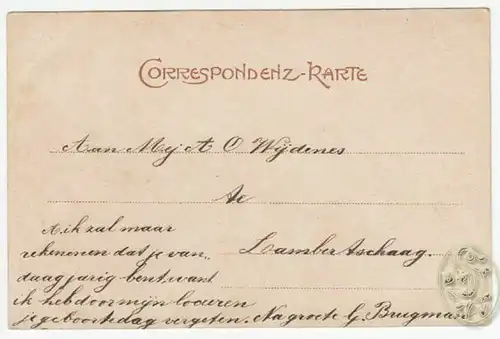 CORRESPONDENZ-KARTE
Aan Mej A O Wijdenes
Te
Lambertschaag.
A ik zal maar
rekenonen dat je van„
daag jarig bent, want
ik heb don mijn
je geboortedag vergeten. Na groete G, Brugman